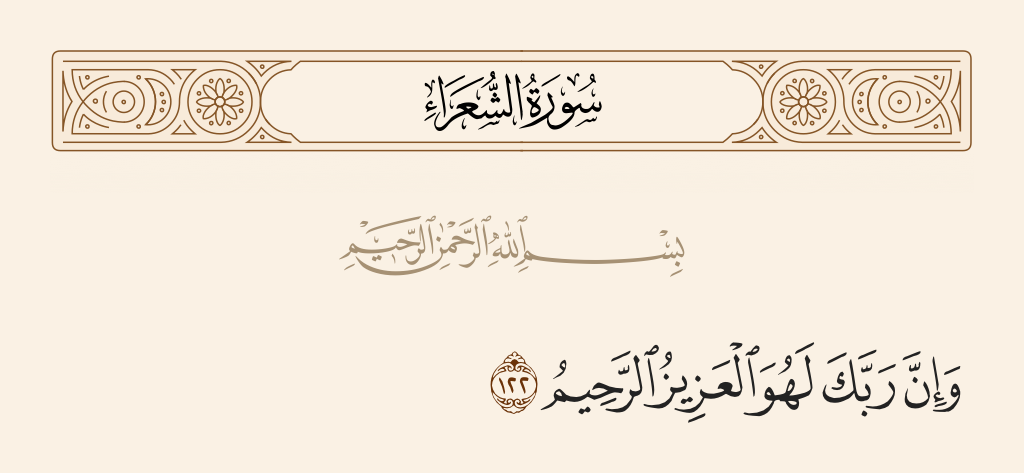 سُورَةُ الشُّعَرَاءِ
بِسْمِ ٱللَّهِ ٱلرَّحْمَٰنِ ٱلرَّحِيمِ
وَإِنَّ رَبَّكَ لَهُوَ ٱلْعَزِيزُ ٱلرَّحِيمُ ١٢٢